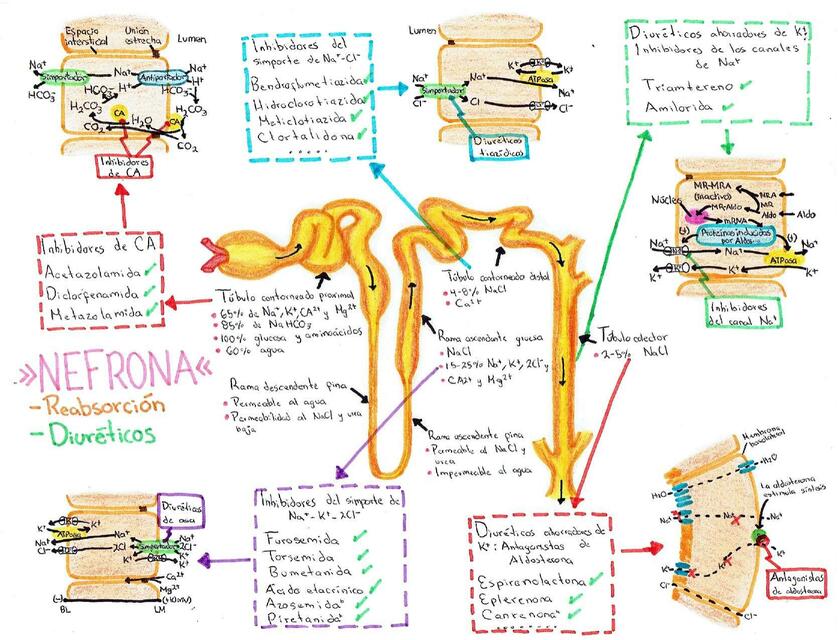 Espacio intersticial
Unión estrecha
Lumen
Na⁺
Simportador
HCO₃⁻
Na⁺
Antiportador
Na⁺
H⁺
HCO₃⁻
H⁺
HCO₃⁻
H₂CO₃
H₂CO₃
CA
H₂O
CA
CO₂
CO₂
Inhibidores
de CA
Inhibidores del
simporte de Na⁺-Cl⁻
Bendroflumetiazida
Hidroclorotiazida
Meticlotiazida
Clortalidona
.....
Lumen
Na⁺
Simportador
Cl⁻
Na⁺
Cl
K⁺
K⁺
ATPasa
Na⁺
Cl⁻
Diuréticos
tiazídicos
Diuréticos ahorradores de K⁺:
Inhibidores de los canales
de Na⁺
Triamtereno
Amilorida
MR-MRA
(inactivo)
MRA
Núcleo
MR-Aldo
MR
mRNA
Aldo
Aldo
(+)
Proteínas inducidas
por Aldo..
(+)
Na⁺
Na⁺
Na⁺
ATPasa
K⁺
K⁺
K⁺
Inhibidores
del canal Na⁺
Inhibidores de CA
Acetazolamida
Diclorfenamida
Metazolamida
Túbulo contorneado proximal
65% de Na⁺, K⁺, CA²⁺ y Mg²⁺
85% de NaHCO₃
100% glucosa y aminoácidos
60% agua
Túbulo contorneado distal
4-8% NaCl
Ca²⁺
Rama ascendente gruesa
NaCl
15-25% Na⁺, K⁺, 2Cl⁻ y
CA²⁺ y Mg²⁺
Túbulo colector
2-5% NaCl
»NEFRONA«
-Reabsorción
-Diuréticos
Rama descendente fina
Permeable al agua
Permeabilidad al NaCl y urea
baja
Rama ascendente fina
Permeable al NaCl y
urea
Impermeable al agua
Diuréticos
de asa
K⁺
K⁺
K⁺
ATPasa
Na⁺
Na⁺
Cl⁻
Na⁺
2Cl⁻
Simportador
2Cl⁻
K⁺
K⁺
K⁺
Ca²⁺
Mg²⁺
(-)
BL
LM
Inhibidores del simporte de
Na⁺-K⁺-2Cl⁻
Furosemida
Torsemida
Bumetanida
Ácido etacrínico
Azosemida*
Piretanida*
Diuréticos ahorradores de
K⁺: Antagonistas de
Aldosterona
Espironolactona
Eplerenona
Canrenona*
Membrana
basolateral
H₂O
H₂O
La aldosterona
estimula síntesis
Na⁺
Na⁺
Na⁺
K⁺
K⁺
K⁺
Cl⁻
Cl⁻
Antagonistas
de aldosterona